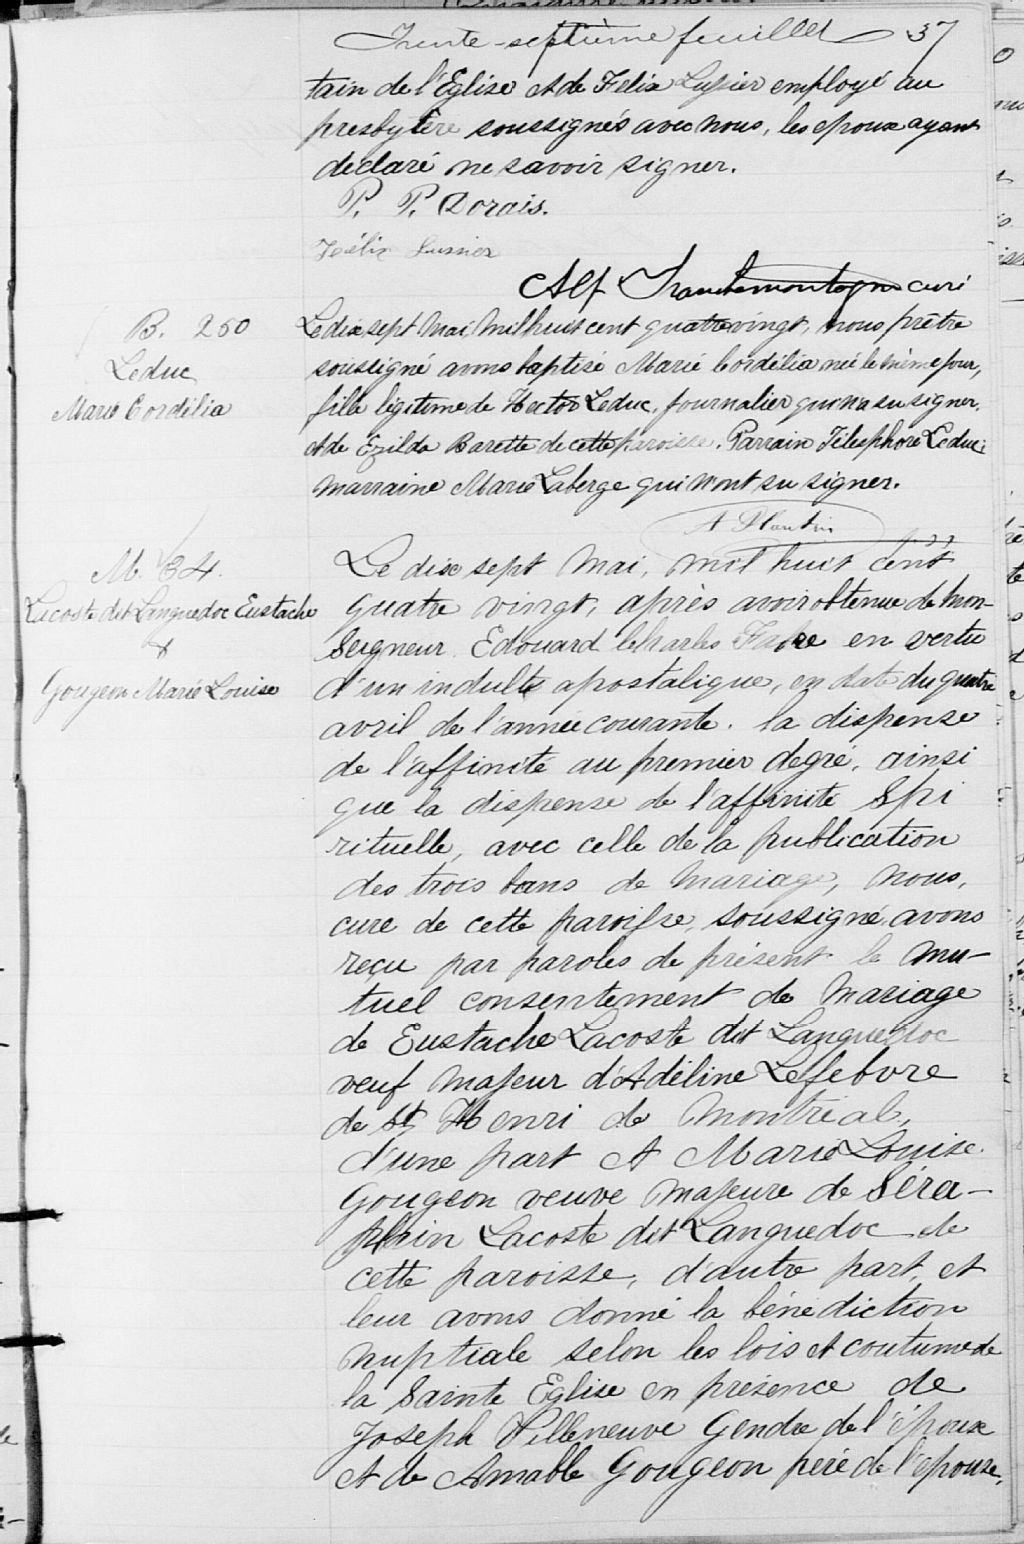 Trente-septième feuillet 37
tain de l'Eglise et de Felix Lussier employé au
presbytère soussignés avec nous, les epoux ayant
declaré ne savoir signer.
P. P. Dorais.
Félix Lussier
Alf Tranchemontagne curé
B. 250
Leduc
Marie Cordélia
Le dix sept Mai, Mil huit cent quatre vingt, nous prêtre
soussigné avons baptisé Marie Cordélia née le même jour,
fille légitime de Hector Leduc, journalier qui n'a su signer,
et de Ezilda Barette de cette paroisse. Parrain Télesphore Leduc
marraine Marie Laberge qui n'ont su signer.
A Plantin
M. 34.
Lacoste dit Languedoc Eustache
&
Gougeon Marie Louise
Le dix sept Mai, mil huit cent
quatre vingt, après avoir obtenue de Mon-
Seigneur Edouard Charles Fabre en vertu
d'un indulte apostalique, en date du quatre
avril de l'année courante. la dispense
de l'affinité au premier degré, ainsi
que la dispense de l'affinité Spi
rituelle, avec celle de la publication
des trois bans de Mariage, nous,
curé de cette paroisse, soussigné, avons
reçu par paroles de présent le mu-
tuel consentement de Mariage
de Eustache Lacoste dit Languedoc
veuf majeur d'Adéline Lefebvre
de St Henri de Montréal,
d'une part et Marie Louise
Gougeon veuve majeure de Séra-
phin Lacoste dit Languedoc de
cette paroisse, d'autre part, et
leur avons donné la bénédiction
nuptiale selon les lois et coutume de
la Sainte Eglise en présence de
Joseph Villeneuve Gendre de l'époux
et de Amable Gougeon père de l'épouse,